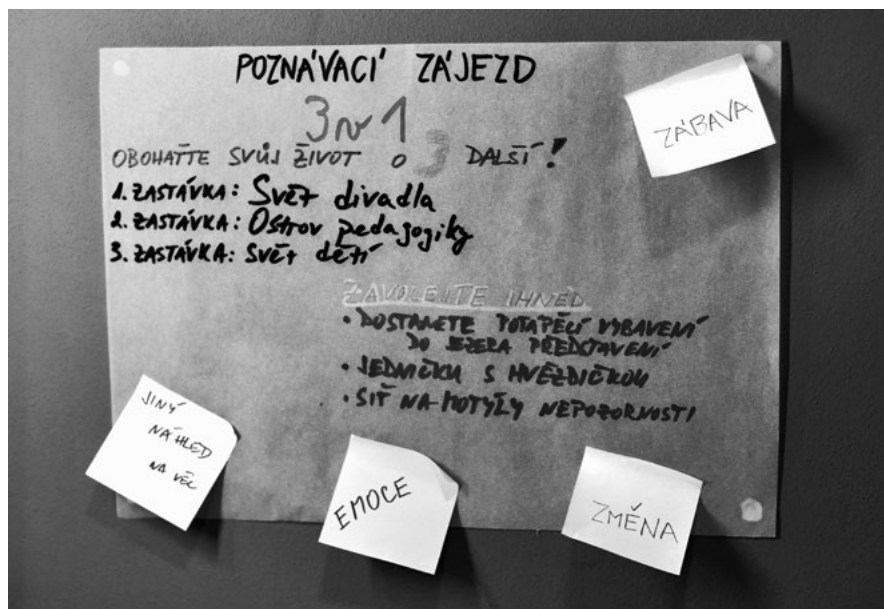 POZNÁVACÍ ZÁJEZD
3 v 1
OBOHAŤTE SVŮJ ŽIVOT O 3 DALŠÍ!
1. ZASTÁVKA: Svět divadla
2. ZASTÁVKA: Ostrov pedagogiky
3. ZASTÁVKA: Svět dětí
ZAVOLEJTE IHNED
• DOSTANETE POTÁPĚČÍ VYBAVENÍ
DO JEZERA PŘEDSTAVENÍ
• JEDNIČKU S HVĚZDIČKOU
• SÍŤ NA MOTÝLY NEPOZORNOSTI
ZÁBAVA
JINÝ
NÁHLED
NA VĚC
EMOCE
ZMĚNA